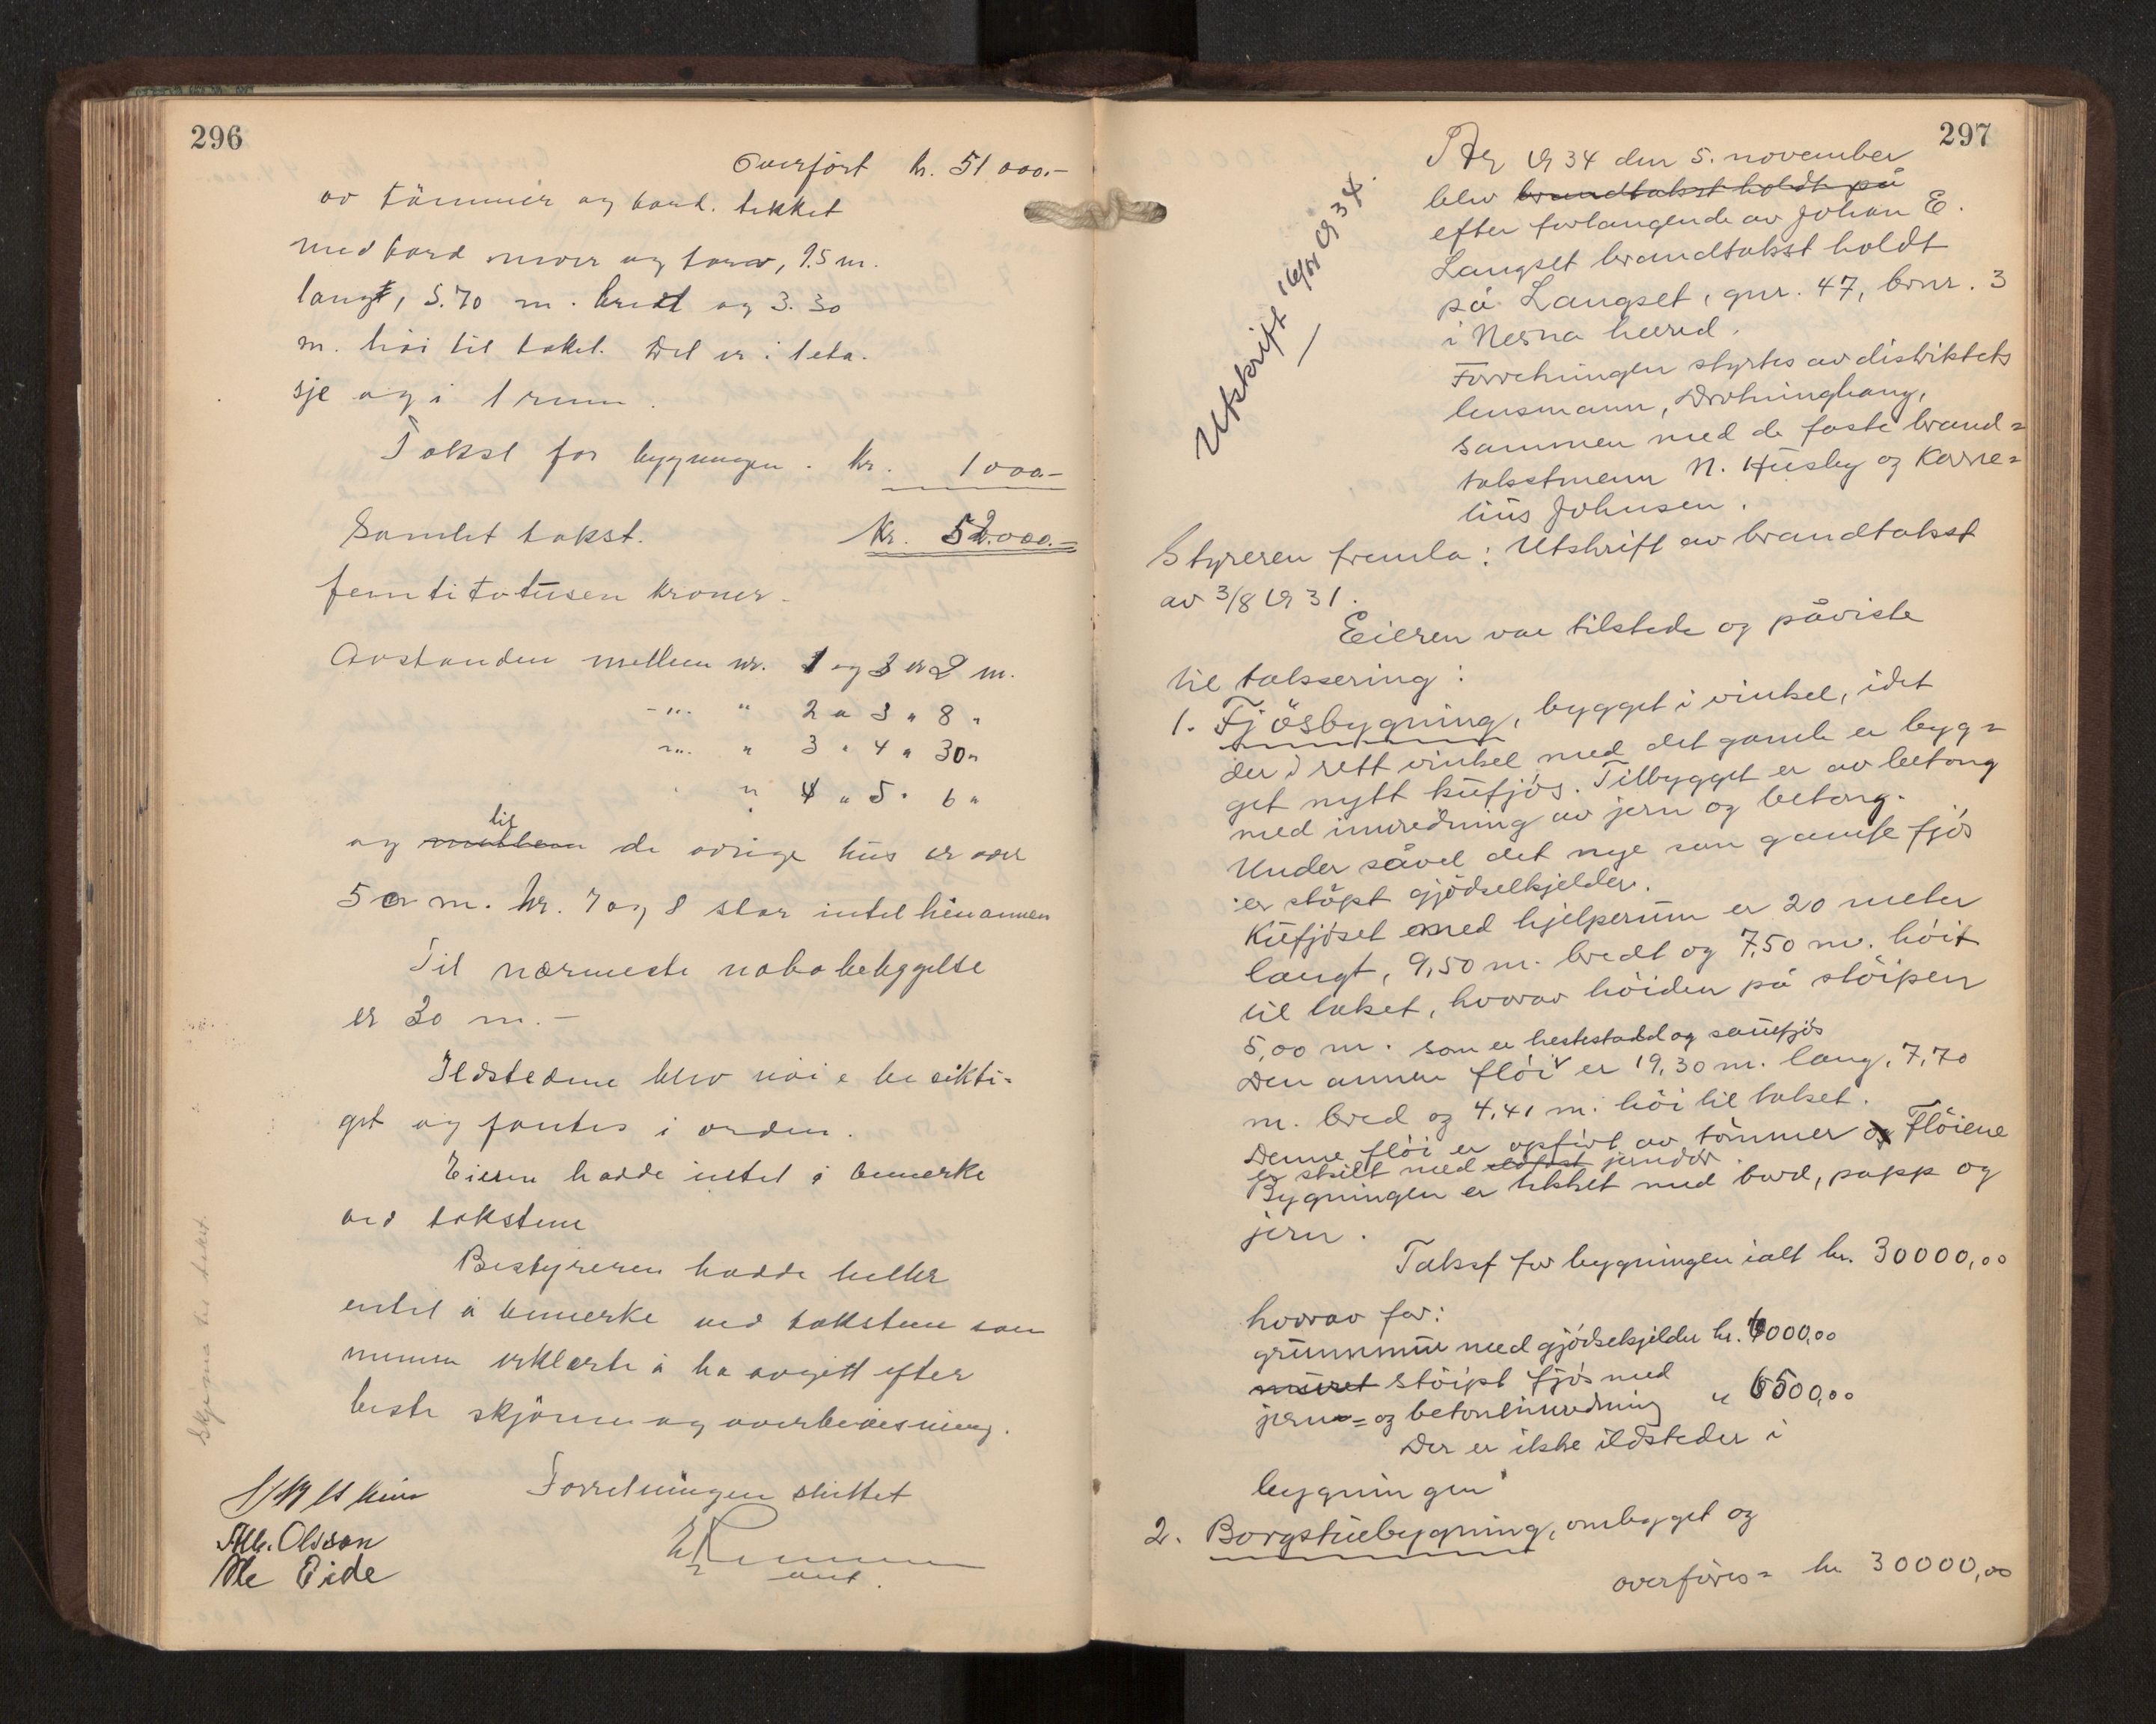 296
Overført kr. 51 000.-
av tömmer og bord. tekket
med bord never og torv, 9.5 m.
langt, 5.70 m. bredt og 3.30
m. höi til taket. Det er i 1 eta-
sje og i 1 rum.
Takst for bygningen. kr. 1000.-
Samlet takst. Kr. 52.000.-
femtitotusen kroner.
Avstanden mellem nr. 1 og 3 er 2 m.
-"- " 2 " 3 " 8 "
-"- " 3 " 4 " 30 "
" 4 " 5 " 6 "
til
og mellem de övrige hus er over
50 m. Nr. 7 og 8 står intil hinannen
Til nærmeste nabobebyggelse
er 30 m.-
Ildstedene blev nöie besikti-
get og fantes i orden.
Eieren hadde intet å bemerke
ved takstene
Bestyreren hadde heller
intet å bemerke ved takstene som
mennene erklærte å ha avgitt efter
beste skjönn og overbevisning.
Forretningen sluttet
Olsson
Ole Eide
Skjema til takst.
297
Utskrift 16/11 1934.
År 1934 den 5. november
blev brandtakst holdt på
efter forlangende av Johan E.
Langset brandtakst holdt
på Langset, gnr. 47, bnr. 3
i Nesna herred.
Forretningen styrtes av distriktets
lensmann, Dronninghaug,
sammen med de faste brand=
takstmenn N. Husby og Korne=
lius Johnsen.
Styreren fremla: Utskrift av brandtakst
av 3/8 1931.
Eieren var tilstede og påviste
til taksering:
1. Fjösbygning, bygget i vinkel, idet
der i rett vinkel med det gamle er byg=
get nytt kufjös. Tilbygget er av betong
med innredning av jern og betong.
Under såvel det nye som gamle fjös
er stöpt gjödselkjelder.
Kufjöset med hjelperum er 20 meter
langt, 9,50 m. bredt og 7,50 m. höit
til taket, hvorav höiden på stöipen
5,00 m. som er heststald og sauefjös
Den annen flöi er 19,30 m. lang, 7,70
m. bred og 4,41 m. höi til taket.
Denne flöi er opfört av tömmer og Flöiene
er skilt med ildfast jerndör.
Bygningen er tekket med bord, papp og
jern.
Takst for bygningen ialt kr. 30000,00
hvorav for:
grunnmur med gjödselkjelder kr. 9000,00
muret stöipt fjös med
jern= og betoninnredning " 6500,00
Der er ikke ildsteder i
bygningen
2. Borgstuebygning, ombygget og
overföres= kr 30000,00